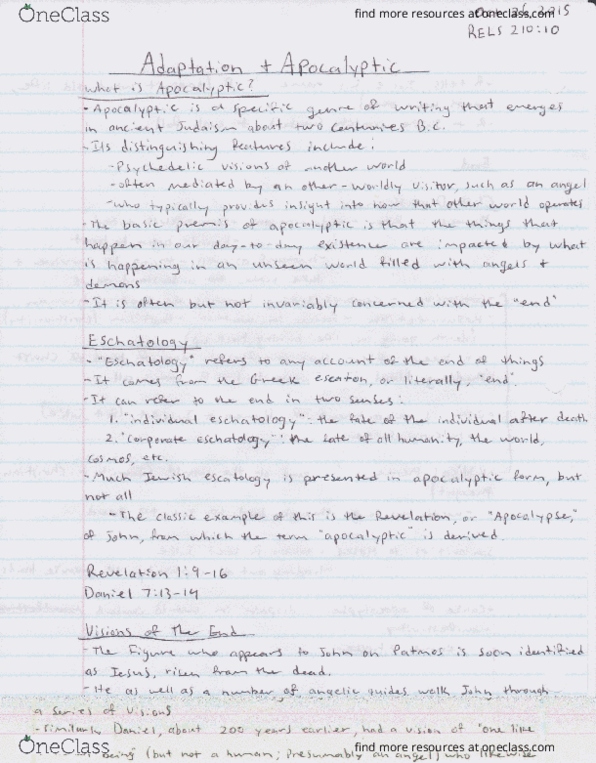 OneClass
find more resources at oneclass.com
2015
RELS 210:10
Adaptation + Apocalyptic
What is Apocalyptic?
- Apocalyptic is a specific genre of writing that emerges
in ancient Judaism about two centuries B.C.
- Its distinguishing features include:
- Psychedelic visions of another world
- often mediated by an other-worldly visitor, such as an angel
- who typically provides insight into how that other world operates
- The basic premis of apocalyptic is that the things that
happen in our day-to-day existence are impacted by what
is happening in an unseen world filled with angels +
demons
- It is often but not invariably concerned with the "end"
Eschatology
- "Eschatology" refers to any account of the end of things
- It comes from the Greek eschaton, or literally, "end".
- It can refer to the end in two senses:
1. "individual eschatology": the fate of the individual after death
2. "corporate eschatology": the fate of all humanity, the world,
cosmos, etc.
- Much Jewish escatology is presented in apocalyptic form, but
not all
- The classic example of this is the Revelation, or "Apocalypse,"
of John, from which the term "apocalyptic" is derived.
Revelation 1:9-16
Daniel 7:13-14
Visions of the End
- The Figure who appears to John on Patmos is soon identified
as Jesus, risen from the dead.
- He, as well as a number of angelic guides walk John through
a series of visions
- Similarly Daniel, about 200 years earlier, had a vision of "one like
being" (but not a human; presumably an angel) who likewise
OneClass
find more resources at oneclass.com